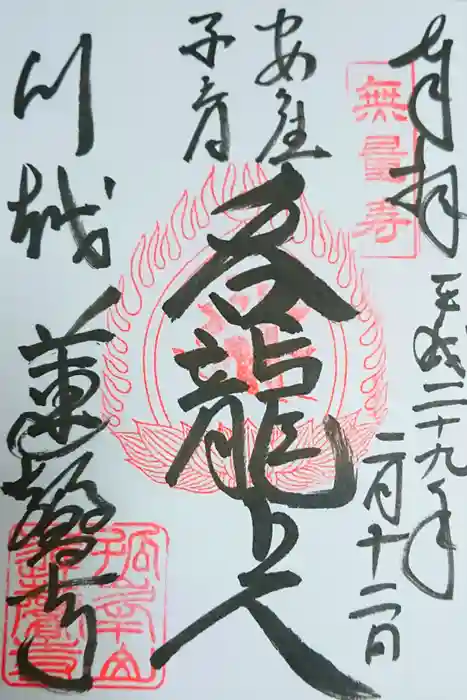 奉拝
平成二十九年
二月十二日
無量寿
安産
子育
呑龍上人
川越
蓮馨寺
孤峯山
蓮馨寺